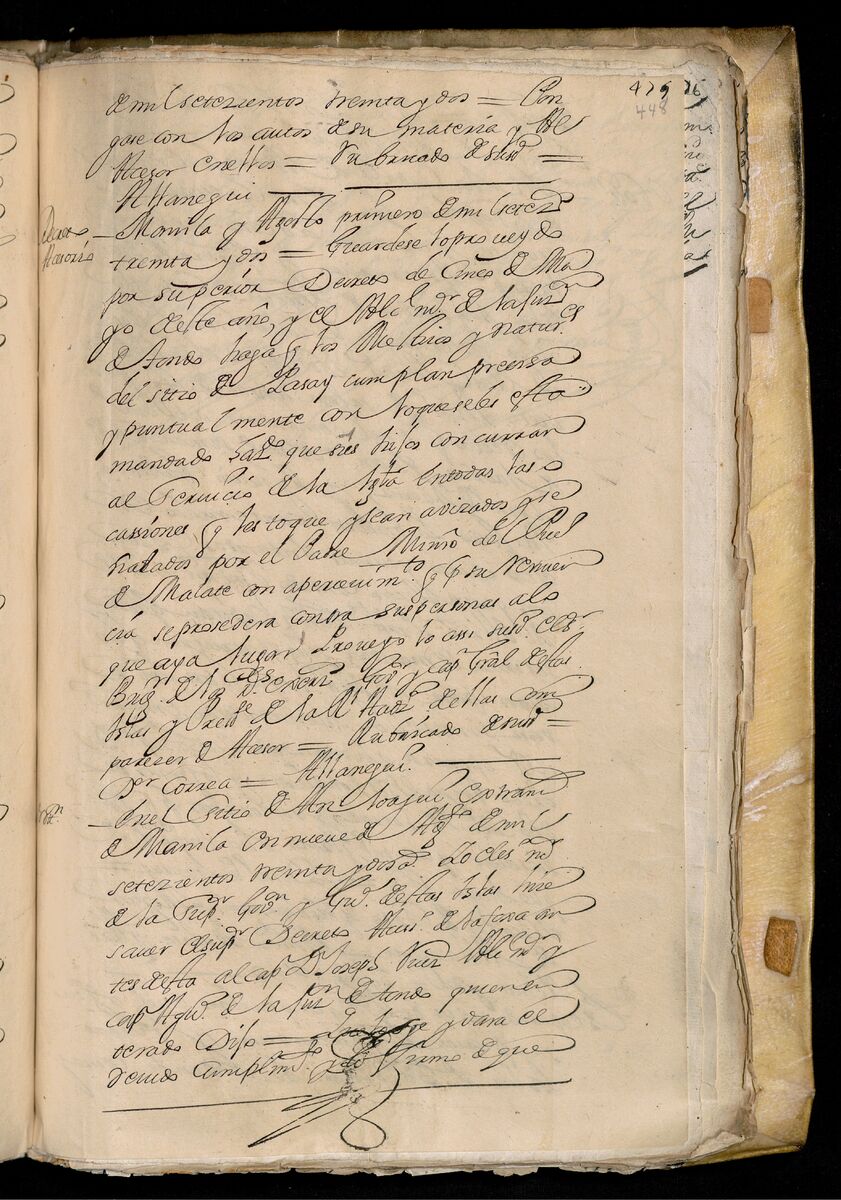 479
448
de mil setezientos treinta y dos = Pon
gase con los autos de su materia y Al
Acesor en ellos = Rubricado de su sa =
Attanegui
Decreto Acesorio
Manila y Agosto primero de mil setezs
treinta y dos = Guardese lo proveydo
por superior Decreto de Cinco de Ma
yo deste año, y el Alce mr de la jurn
de tondo haga q los Mestizos y natures
del sitio de Pasay cumplan precissa
y puntualmente con lo que se les esta
mandado haze que sus hijos concurran
al servicio de la Igla en todas las o
cassiones q les toque y sean avizados y se
ñalados por el Padre Minro del Pueo
de Malate con apercevimto q pr su Renuen
cia se prosedera contra sus personas a lo
que aya lugar Proveyo lo assi su sa el sr
Brigr de los Rs exertos Govr y Capn Gral destas
Islas y Preste de la Rl Auda dellas con
parezer de Acesor = Rubricado de su sa =
Dr Correa = Attanegui
En el sitio de Sn Joaqui extram
de Manila en nueve de Agto de mil
setezientos treinta y dos as Yo el esno mr
de la Supr Govon y Gua destas Islas hize
saver el supr Decreto Aceso de la foxa an
tes desta al Capn Dn Joseph Alce mr y
Capn a Gua de la jurn de tondo quien en
terado Dijo = Que lo oye y dara el
devido Cumplimto y lo firmo de que